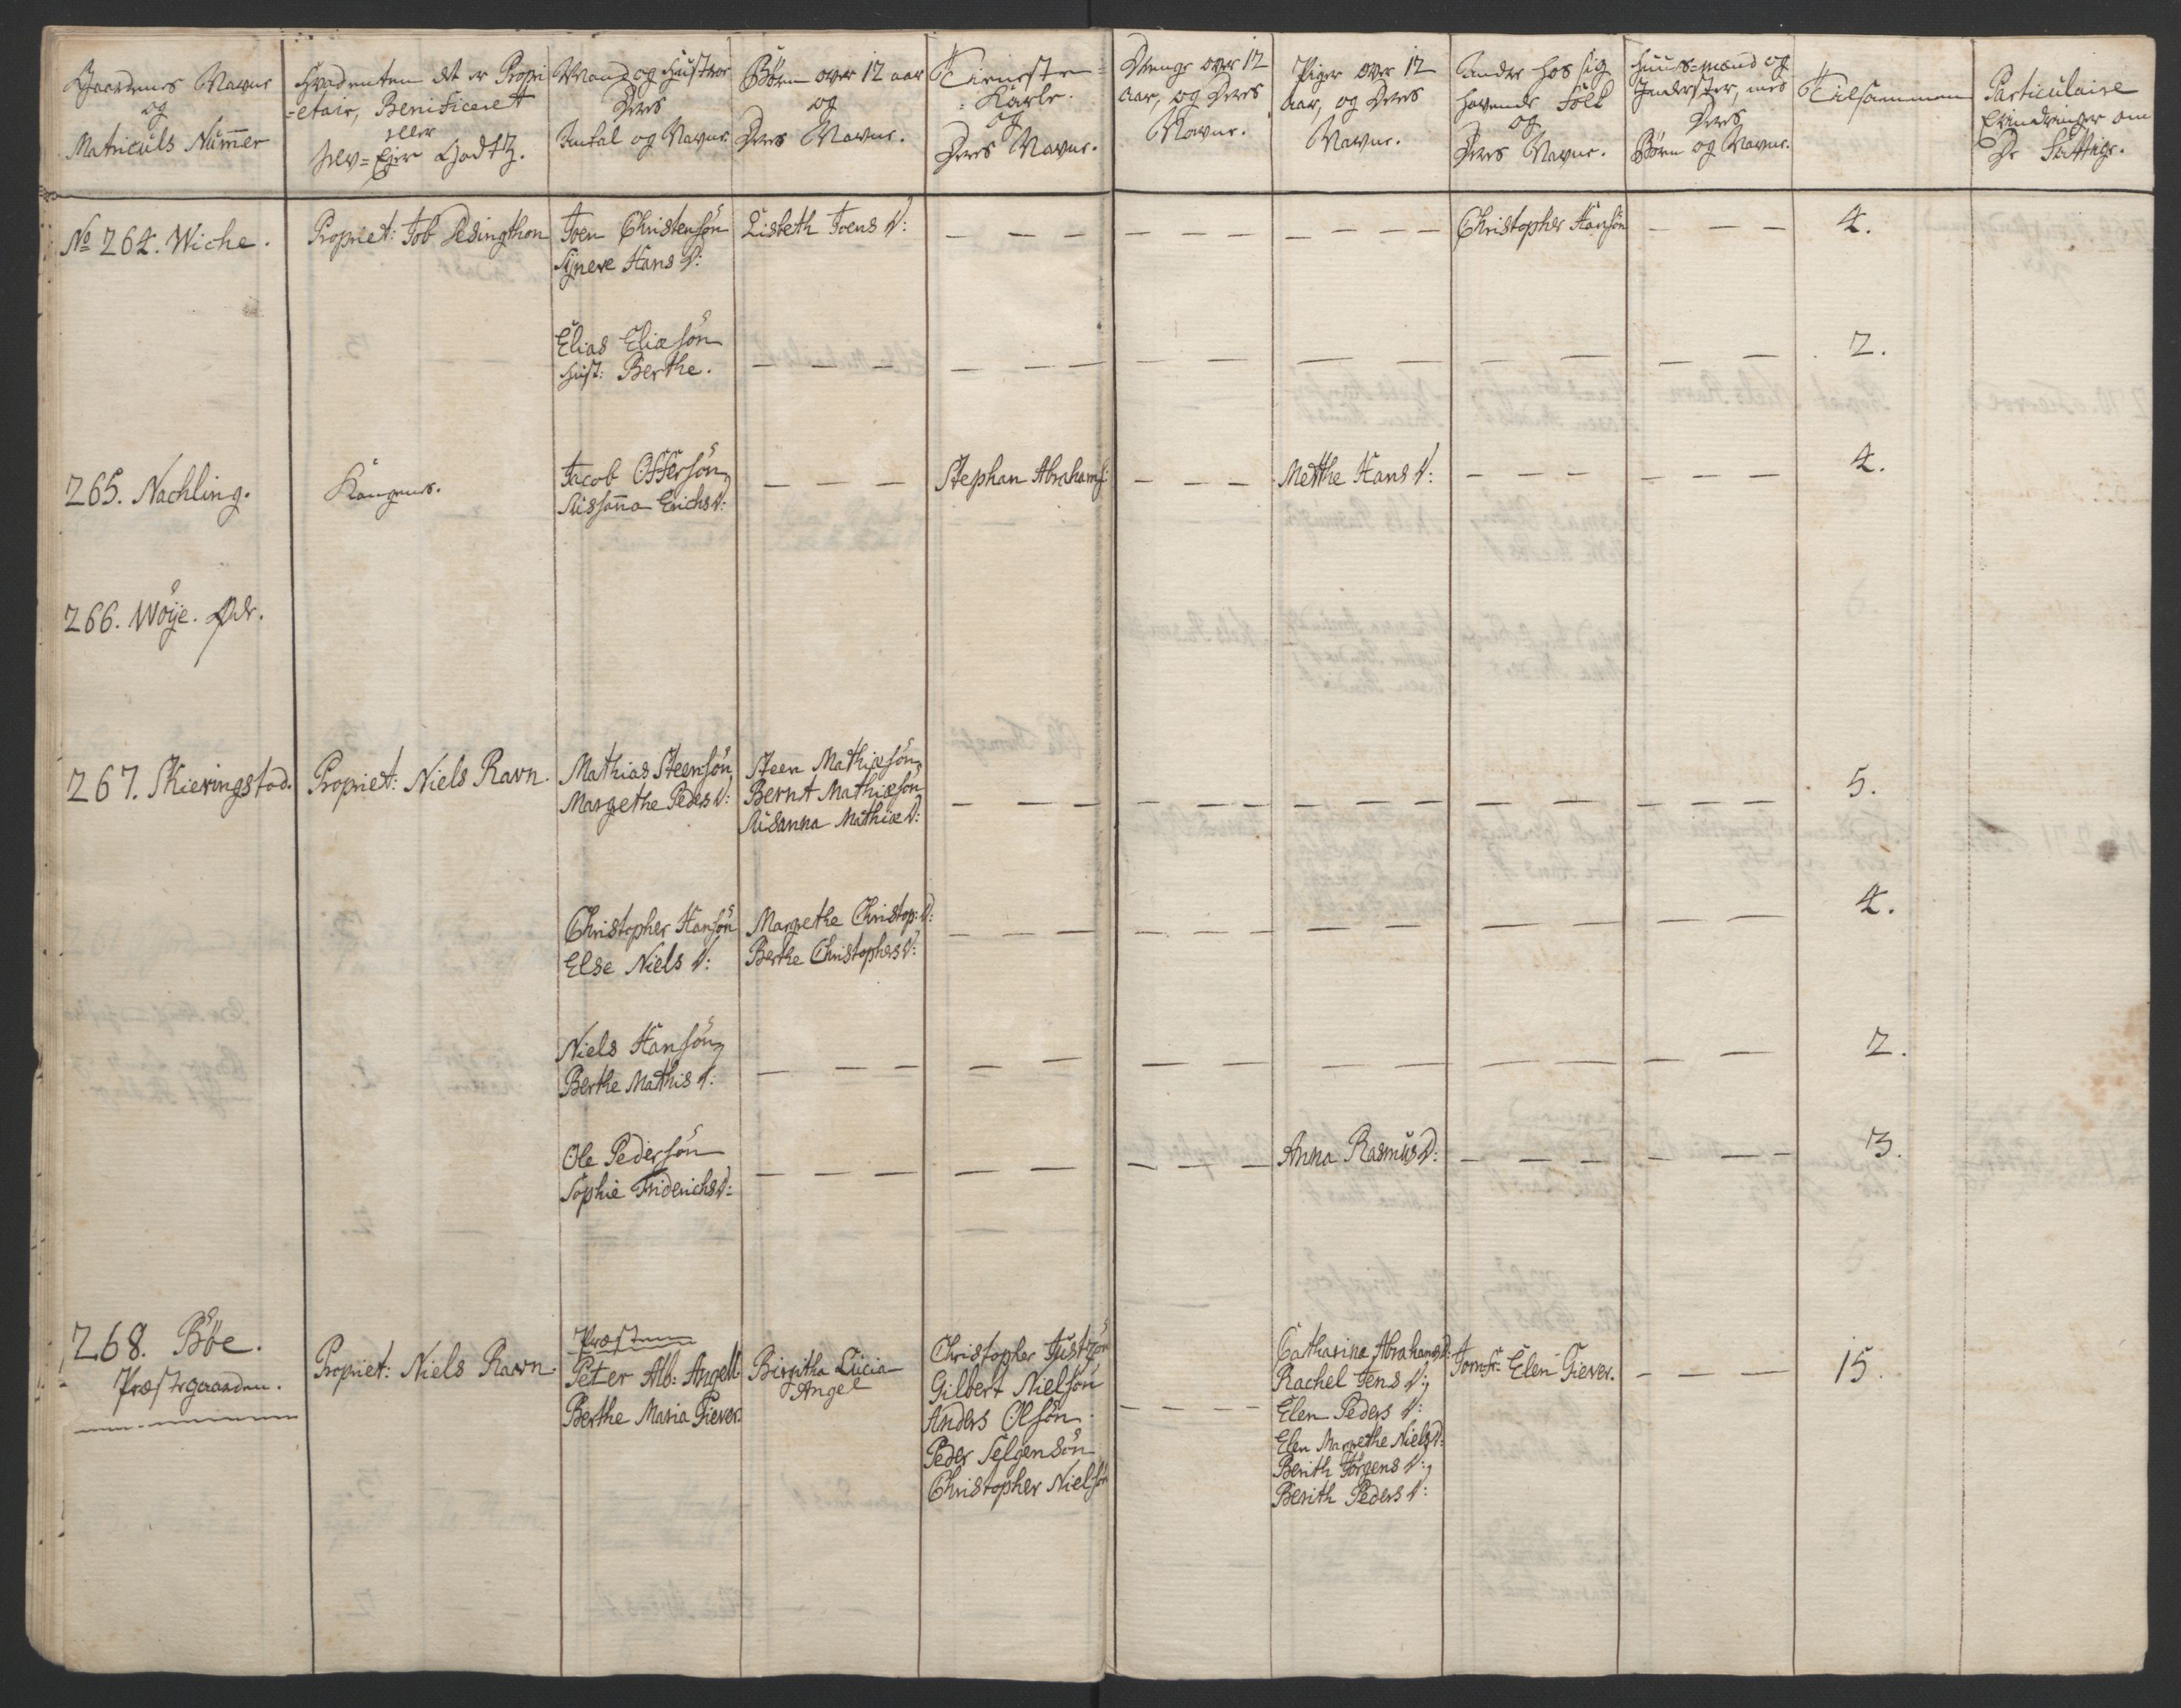 Gaardenes Navne
og
Matriculs Nummer
Hvadenten det er Propri
=etair, Beneficeret
eller
selv=Ejer Godtz.
Mand og Hustroe
Deres
Antal og Navne.
Børn over 12 aar
og
Deres Navne.
Tieneste=
=Karle.
og
Deres Navne.
Drenge over 12
Aar, og Deres
Navne.
Piger over 12
Aar, og Deres
Navne.
Andre hos sig
havende Folk
og
Deres Navne.
Huus=mænd og
Inderster, med
Deres
Børn og Navne.
Tilsammen
Particulaire
Erindringer om
De Fattige.
No 264. Wiche.
Propriet: Job Ledingthon
Joen Christensøn
Lisbeth Joens D:
Christopher Hansøn
4.
Syneve Hans D:
Elias Eliæsøn
2.
Hust: Berthe.
265. Nachling.
Kongens.
Jacob Offersøn
Stephan Abrahams:
Metthe Hans D:
4.
Sussanna Erichs D:
266. Wøye. Øde.
267. Skieringstad.
Propriet: Niels Ravn.
Mathias Steensøn
Steen Mathiæsøn
5.
Margethe Peders D:
Bernt Mathiæsøn
Susanna Mathiæ D:
Christopher Hansøn
Margethe Christop: D:
4.
Else Niels D:
Berthe Christophers D:
Niels Hansøn
2.
Berthe Mathis D:
Ole Pedersøn
Anna Rasmus D:
3.
Sophie Friderichs D:
268. Bøe.
Præstegaarden.
Propriet: Niels Ravn.
Præsten
Peter Alb: Angell
Berthe Maria Giever.
Birgitha Lucia
Angel
Christopher Justsøn
Gilbert Nielsøn
Anders Olsøn
Peder Selgensøn
Christopher Nielsøn
Catharina Abrahams D:
Rachel Jens D:
Elen Peders D:
Elen Margrethe Niels D:
Berith Jørgens D:
Berith Peders D:
Jomfr: Elen Giever.
15.